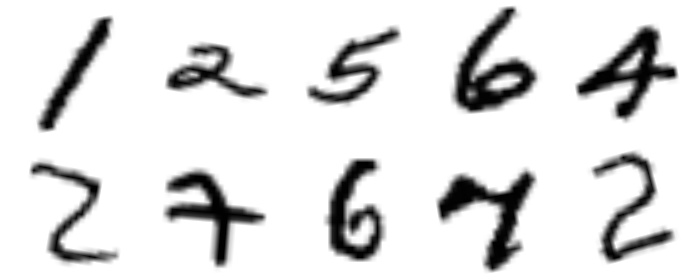 1 2 5 6 4
2 7 6 7 2